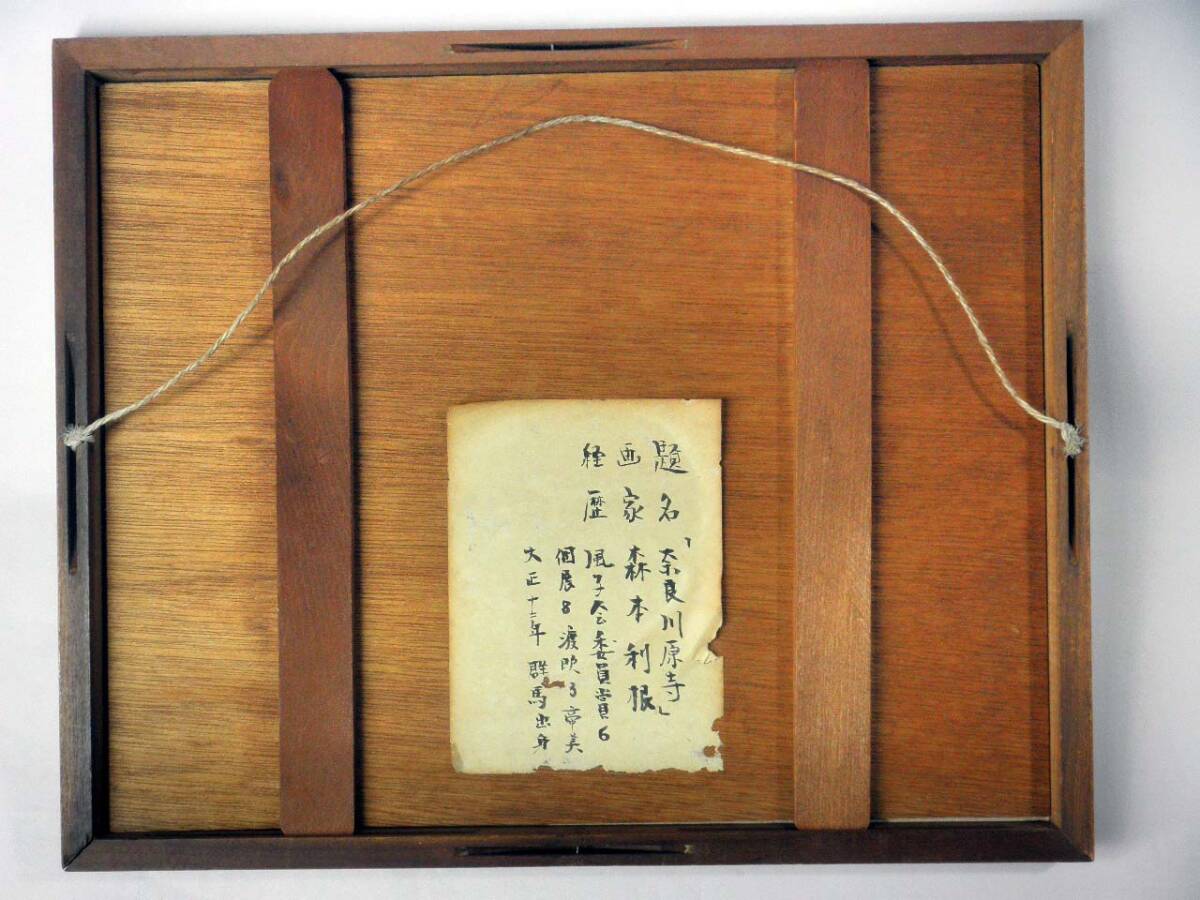 題名「奈良川原寺」
画家 森本利根
経歴 風子会委員賞6
個展8 渡欧3 帝美
大正十二年 群馬出身